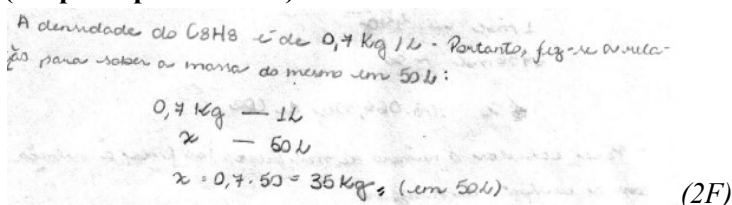 A densidade do C8H8 é de 0,7 Kg/L. Portanto, fez-se a rela-
ção para saber a massa do mesmo em 50L:
0,7 Kg — 1L
x — 50L
x = 0,7 . 50 = 35 Kg, (em 50L)
(2F)